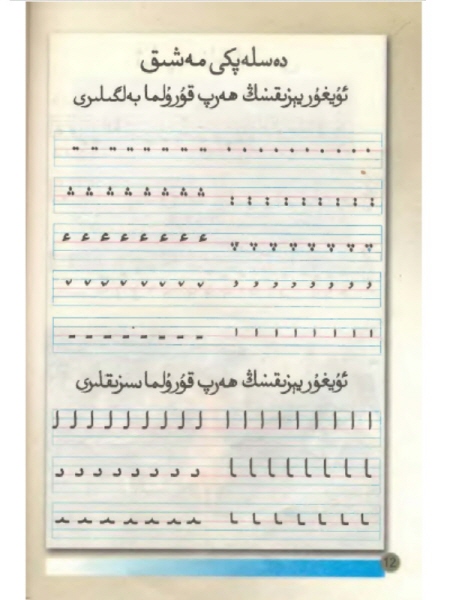 دەسلەپكى مەشىق
ئۇيغۇر يېزىقىنىڭ ھەرپ قۇرۇلما بەلگىلىرى
ئۇيغۇر يېزىقىنىڭ ھەرپ قۇرۇلما سىزىقلىرى
12